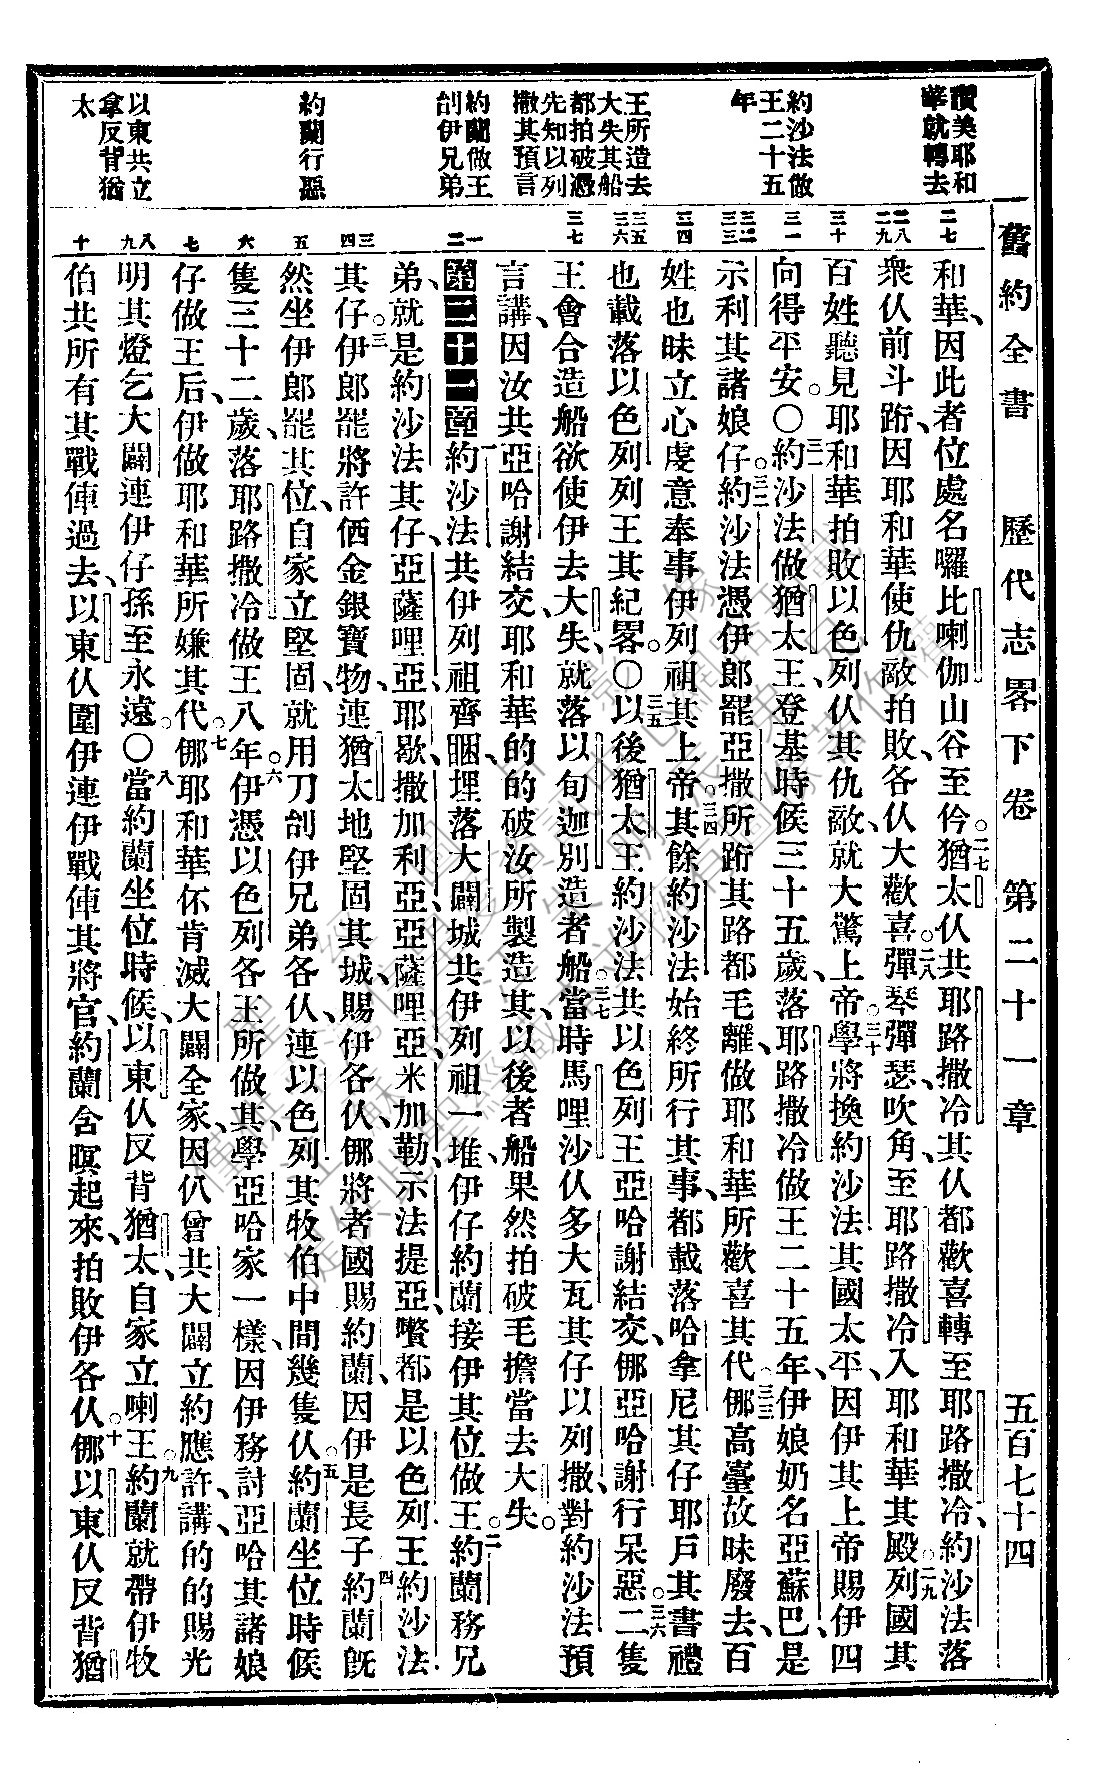 舊約全書 歷代志畧下卷 第二十一章 五百七十四
讚美耶和
華就轉去
約沙法做
王二十五
年
王所造去
大失其船
都拍破憑
先知以列
撒其預言
約蘭做王
刣伊兄弟
約蘭行惡
以東共立
拿反背猶
太
二七
二八
二九
三十
三一
三二
三三
三四
三五
三六
三七
一
二
三
四
五
六
七
八
九
十
和華、因此者位處名囉比喇伽山谷至伱。二七猶太仈共耶路撒冷其仈都歡喜轉至耶路撒冷、約沙法落
衆仈前斗跔、因耶和華使仇敵拍敗、各仈大歡喜。二八彈琴彈瑟、吹角、至耶路撒冷、入耶和華其殿。二九列國其
百姓聽見耶和華拍敗以色列仈其仇敵、就大驚上帝。三十學將換約沙法其國太平、因伊其上帝賜伊四
向得平安。〇三一約沙法做猶太王、登基時候三十五歲、落耶路撒冷做王二十五年、伊娘奶名亞蘇巴、是
示利其諸娘仔。三二約沙法憑伊郎罷亞撒所跔其路都毛離、做耶和華所歡喜其代。三三㑚高臺故昧廢去、百
姓也昧立心虔意奉事伊列祖其上帝。三四其餘約沙法始終所行其事、都載落哈拿尼其仔耶戶其書、禮
也載落以色列列王其紀畧。〇三五以後猶太王約沙法共以色列王亞哈謝結交、㑚亞哈謝行呆惡。三六二隻
王會合造船欲使伊去大失、就落以旬迦別造者船。三七當時馬哩沙仈多大瓦其仔以列撒、對約沙法預
言講、因汝共亞哈謝結交、耶和華的的破汝所製造其、以後者船果然拍破毛擔當去大失。
第二十一章 一約沙法共伊列祖齊睏、埋落大闢城共伊列祖一堆、伊仔約蘭接伊其位做王。二約蘭務兄
弟、就是約沙法其仔、亞薩哩亞、耶歇、撒加利亞、亞薩哩亞、米加勒、示法提亞、囋都是以色列王約沙法
其仔。三伊郎罷將許㑚金銀寶物、連猶太地堅固其城、賜伊各仈、㑚將者國賜約蘭、因伊是長子。四約蘭旣
然坐伊郎罷其位、自家立堅固、就用刀刣伊兄弟各仈、連以色列其牧伯中間幾隻仈。五約蘭坐位時候
隻三十二歲、落耶路撒冷做王八年。六伊憑以色列各王所做其、學亞哈家一樣、因伊務討亞哈其諸娘
仔做王后、伊做耶和華所嫌其代。七㑚耶和華伓肯滅大闢全家、因仈曾共大闢立約應許、講的的賜光
明其燈乞大闢連伊仔孫至永遠。〇八當約蘭坐位時候、以東仈反背猶太、自家立喇王。九約蘭就帶伊牧
伯共所有其戰俥過去、以東仈圍伊連伊戰俥其將官、約蘭含暝起來、拍敗伊各仈。十㑚以東仈反背猶